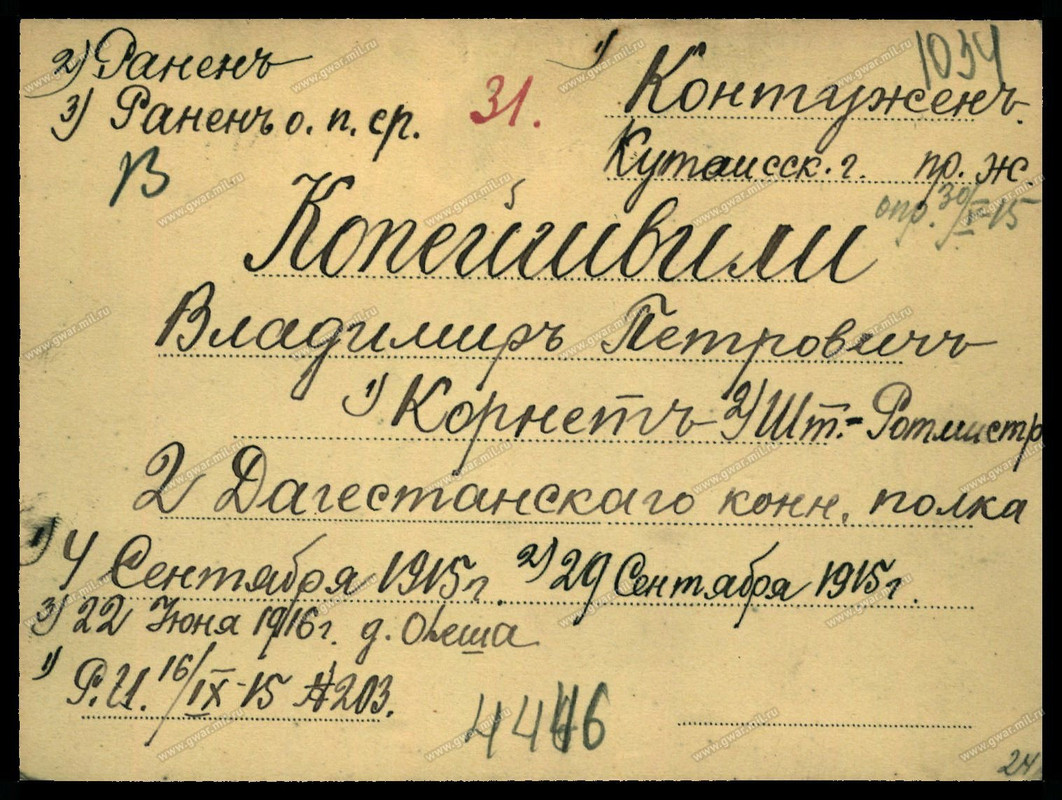 2) Раненъ
3) Раненъ о. п. ср.
31.
1) Контуженъ.
1034
Кутаисск. г. пр. ж.
В
опр. 30/I-15
Копейшвили
Владимиръ Петровичъ
1) Корнетъ 2) Шт.-Ротмистр
2 Дагестанскаго конн. полка
1) 4 Сентября 1915 г. 2) 29 Сентября 1915 г.
3) 22 Июня 1916 г. д. Олеша
1) Р.И. 16/IX-15 № 203.
4446
24
www.gwar.mil.ru